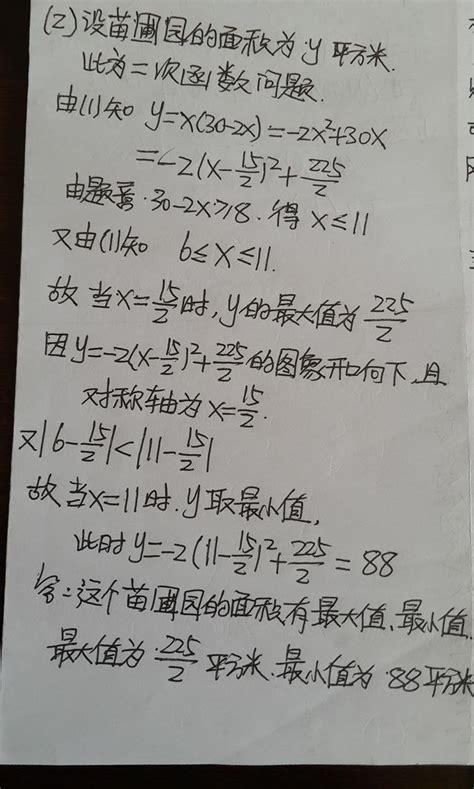 (2)设苗圃园的面积为y平方米.
此为二次函数问题.
由(1)知 y=x(30-2x)=-2x²+30x
=-2(x-15/2)²+225/2
由题意.30-2x≥8.得 x≤11
又由(1)知 6≤x≤11.
故当x=15/2时,y的最大值为225/2
因y=-2(x-15/2)²+225/2的图象开口向下,且
对称轴为x=15/2.
又|6-15/2|<|11-15/2|
故当x=11时.y取最小值,
此时y=-2(11-15/2)²+225/2=88
答:这个苗圃园的面积有最大值、最小值,
最大值为225/2平方米.最小值为88平方米